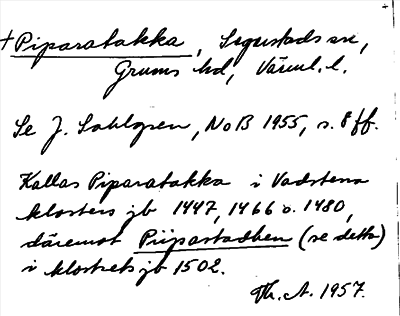 †Piparatakka, Segerstads sn,
Grums hd, Värml. l.
Se J. Sahlgren, NoB 1955, s. 8 ff.
Kallas Piparatakka i Vadstena
klosters jb 1447, 1466 o. 1480,
däremot Piipastadhen (se detta)
i klostrets jb 1502.
Th. A. 1957.